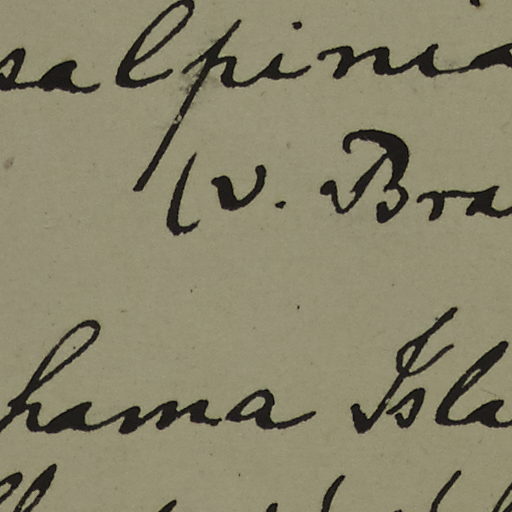 salpinia
(v. Bra
hama Isla